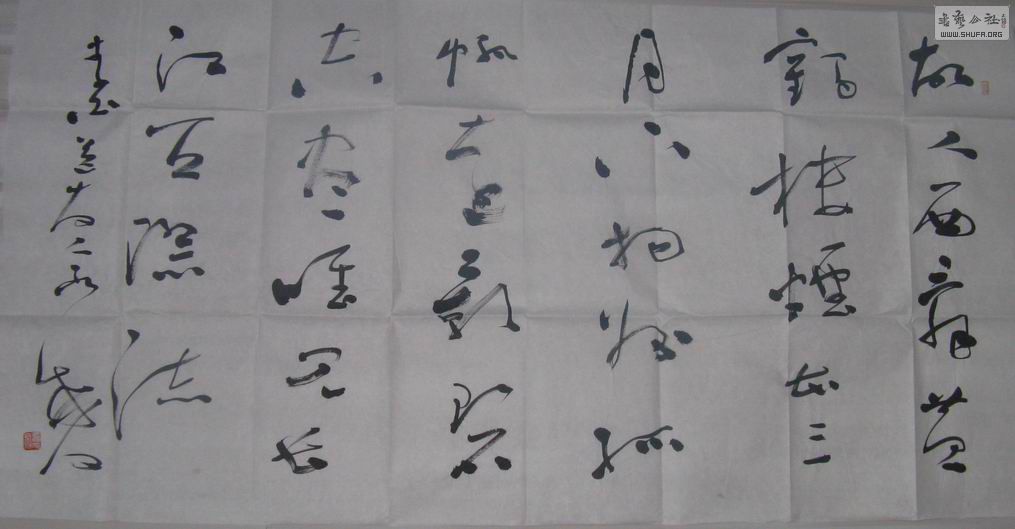 故人西辭黃
鶴樓煙花三
月下揚州孤
帆遠影碧
空盡唯見長
江天際流
李白
WWW.SHUFA.ORG